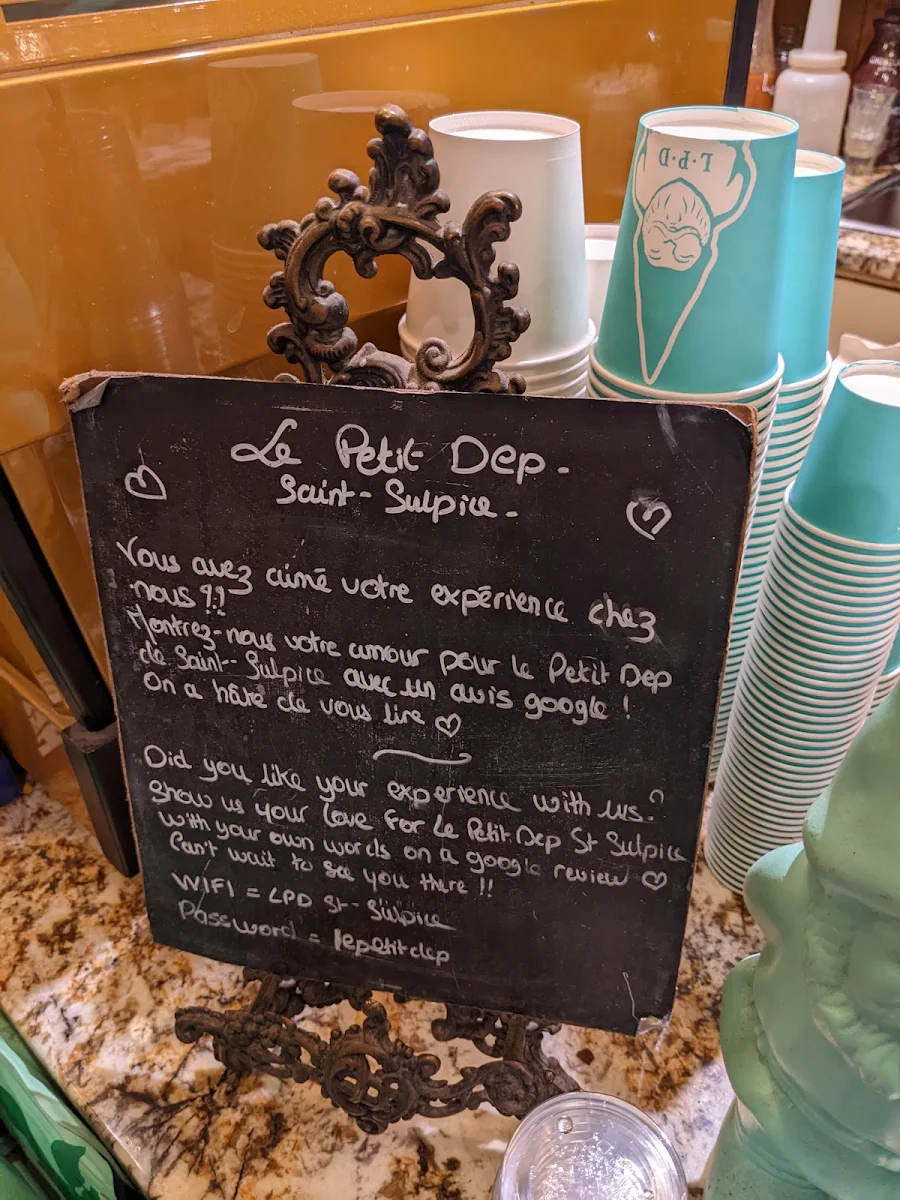 L·P·D
Le Petit Dep.
Saint-Sulpice.
Vous avez aimé votre expérience chez
nous ??
Montrez-nous votre amour pour le Petit Dep
de Saint-Sulpice avec un avis google !
On a hâte de vous lire ♡
Did you like your experience with us?
Show us your love for Le Petit Dep St Sulpice
with your own words on a google review ♡
Can't wait to see you there !!
WIFI = LPD St-Sulpice
Password = lepetitdep